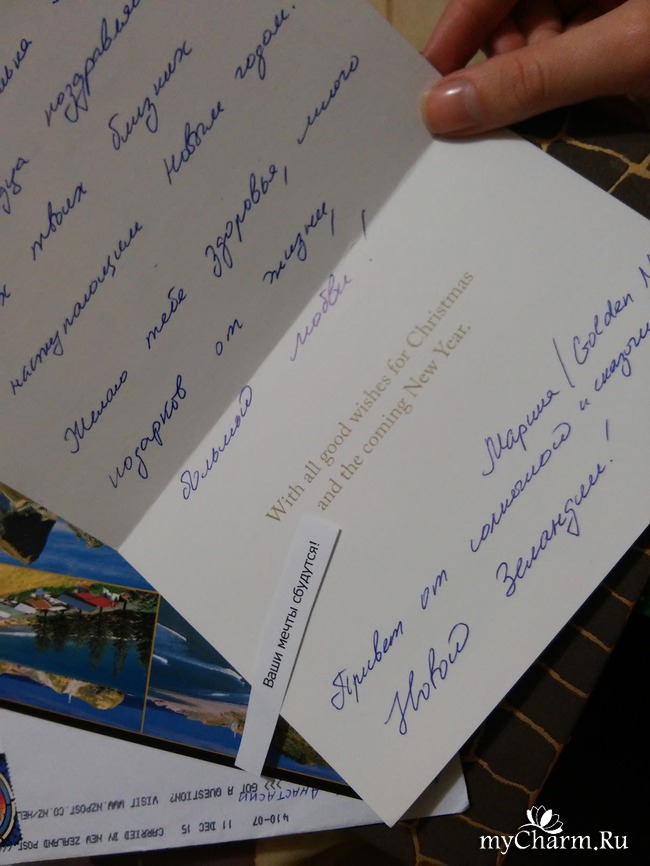 поздравляю
близких
твоих Новым годом.
наступающим
Желаю тебе здоровья, много
подарков от жизни,
большой любви!
With all good wishes for Christmas
and the coming New Year.
Марина/Golden
Привет от солнечной и
Новой Зеландии!
Ваши мечты сбудутся!
Анастасии
GOT A QUESTION? VISIT WWW.NZPOST.CO.NZ/HEL
410-07 11 DEC 15 CARRIED BY NEW ZEALAND POST
myCharm.Ru